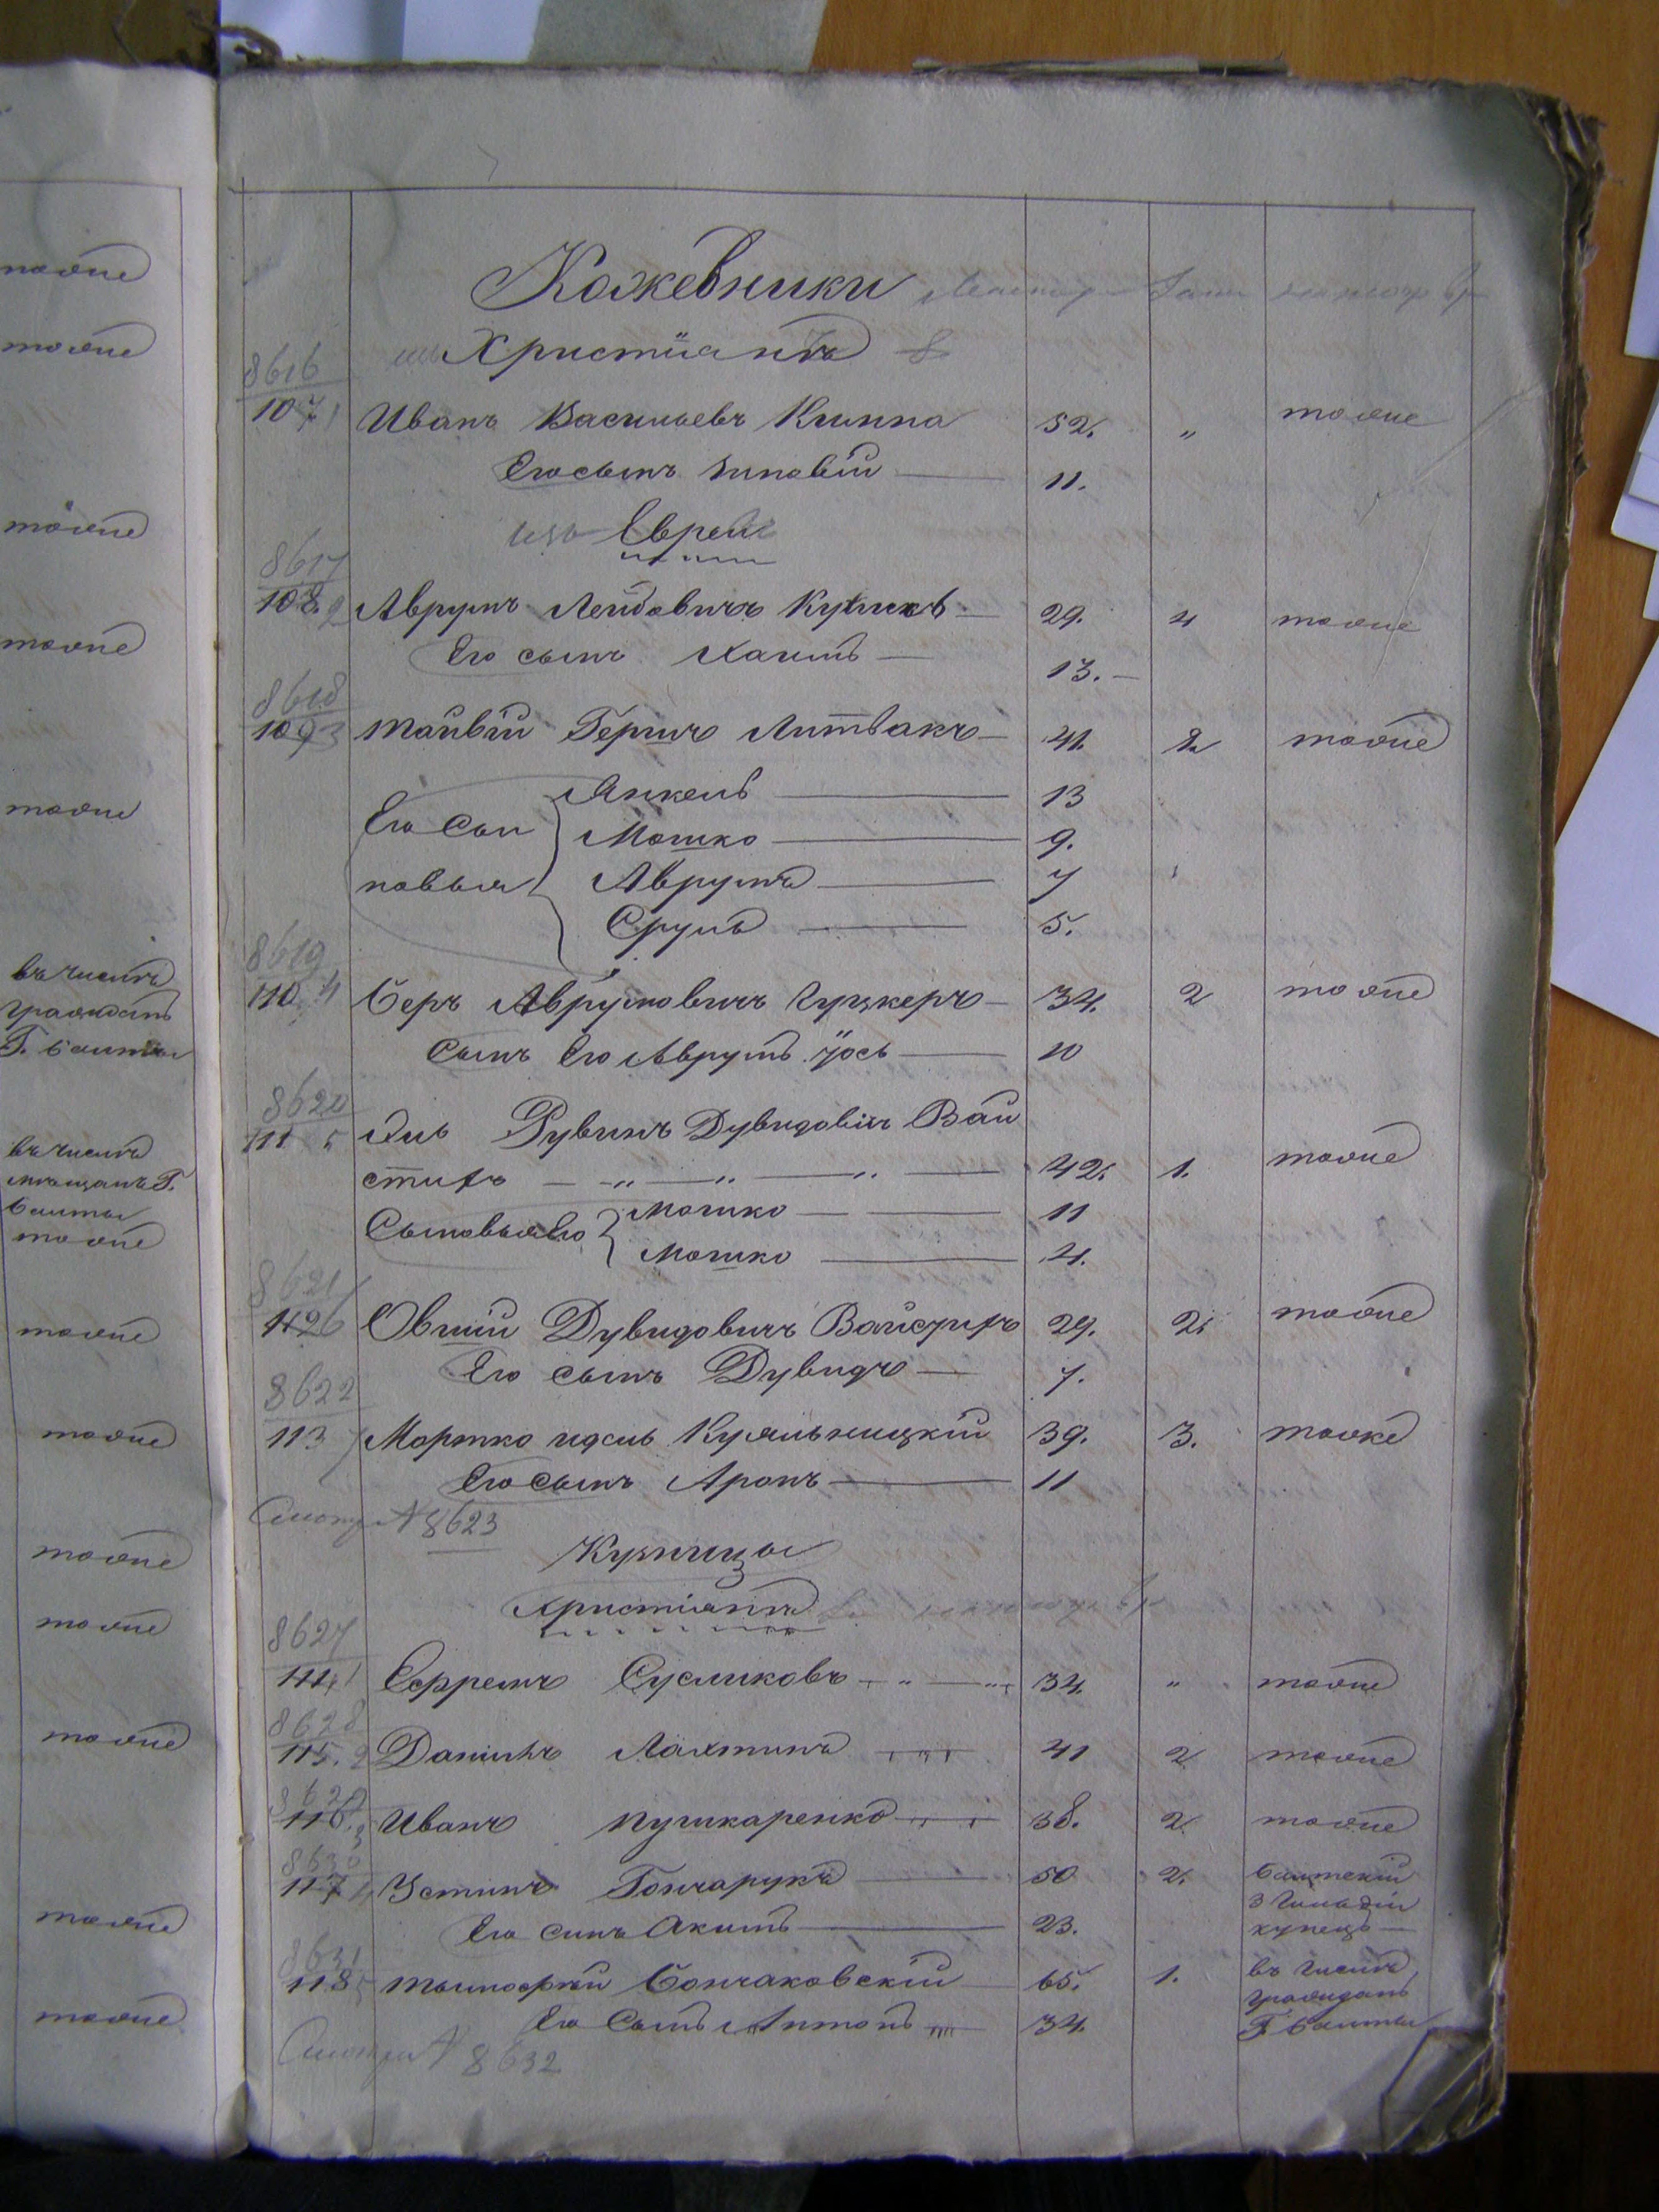 тоже
тоже
тоже
тоже
тоже
въ числѣ
гражданъ
Г. Балты
въ числѣ
мѣщанъ Г.
Балты
тоже
тоже
тоже
тоже
тоже
тоже
тоже
тоже
Кожевники
Христіанъ 8
8616
107 1 Иванъ Васильевъ Кишпа 52. „ тоже
Его сынъ Зиновій 11.
изъ Евреи
8617
108 2 Аврумъ Лейбовичъ 29. 4 тоже
Его сынъ Хаимъ 13.
8618
109 3 Гершъ Литвакъ 41. 2 тоже
Янкель 13
Его сы Мошко 9.
новья Аврумъ 7
Сруль 5.
8619
110 4 Беръ Аврумовичъ Чуцкеръ 34. 2 тоже
Сынъ Его Аврумъ Іось 10
8620
111 5 Рувинъ Дувидовичъ Вай
42. 1. тоже
Сыновья Его Мошко 11
Мошко 4.
8621
112 6 Овшій Дувидовичъ 29. 2. тоже
Его сынъ Дувидъ 7.
8622
113 7 Мортко Куяльницкій 39. 3. тоже
Его сынъ Аронъ 11
Смотри № 8623
Кузнецы
Христіанъ
8627
114 1 Ефремъ Сусликовъ 34. „ тоже
8628
115. 2 Данило Лахтинъ 41 2 тоже
8629
116. 3 Иванъ Пушкаренко 38. 2. тоже
8630
117 4 Устинъ Гончарукъ 50 2. Балтскій
3 Гильдіи
Его синъ Акимъ 23. купецъ
8631
118 5 Тымофѣй Бончаковскій 65. 1. въ числѣ
гражданъ
Его Сынъ Антонъ 34. Г. Балты
Смотри № 8632